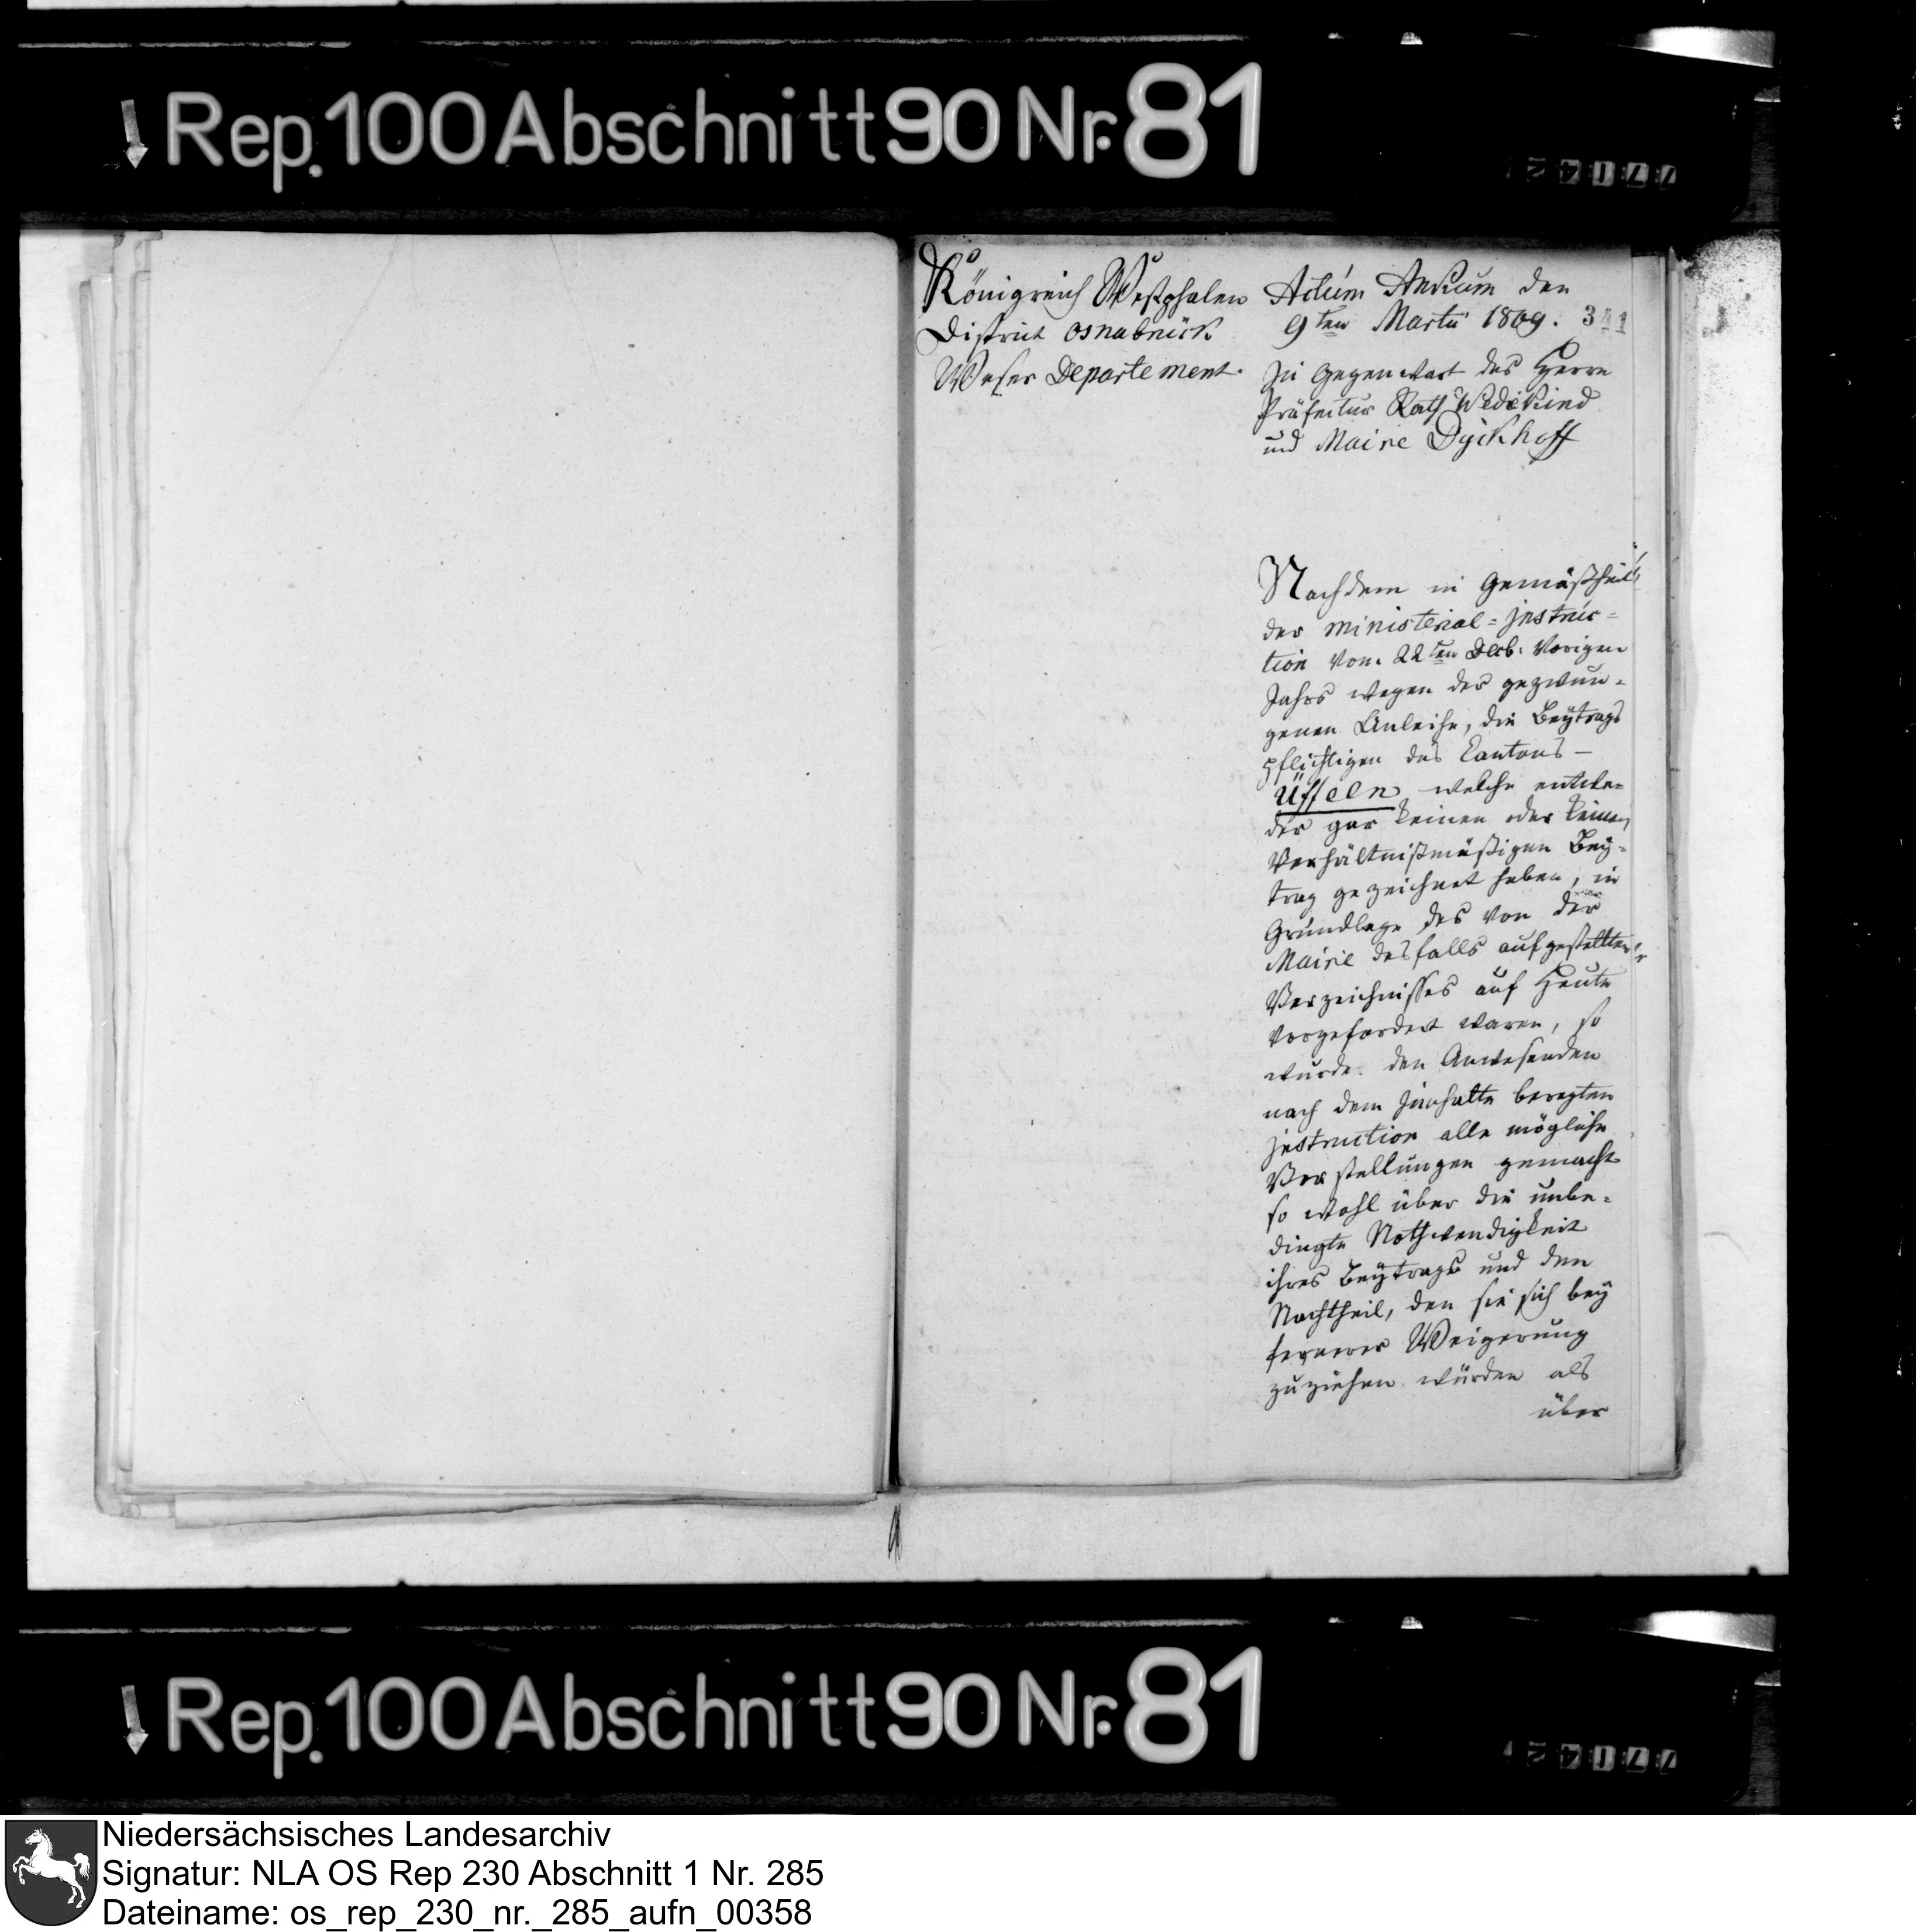 Rep. 100 Abschnitt 90 Nr. 81
Königreich Westphalen
District Osnabrück
Weser Departement.
Actum Ankum den
9ten Martii 1809.
341
In Gegenwart des Herrn
Präfectur Rath Wedekind
und Maire Dyckhoff
Nachdem in Gemäßheit
der Ministerial-Instruc-
tion vom 22ten Decb. vorigen
Jahrs wegen der gezwun-
genen Anleihe, die Beytrags
pflichtigen des Cantons -
Üffeln welche entwe-
der gar keinen oder keinen
Verhältnißmäßigen Bey-
trag gezeichnet haben, in
Grundlage des von der
Mairie desfalls aufgestellten
Verzeichnisses auf Heute
vorgefordert waren, so
wurde den Anwesenden
nach dem Innhalte beregten
Instruction alle mögliche
Vorstellungen gemacht
so wohl über die unbe-
dingte Nothwendigkeit
ihres Beytrags und den
Nachtheil, den sie sich bey
fernerer Weigerung
zuziehen würden als
über
Rep. 100 Abschnitt 90 Nr. 81
Niedersächsisches Landesarchiv
Signatur: NLA OS Rep 230 Abschnitt 1 Nr. 285
Dateiname: os_rep_230_nr._285_aufn_00358